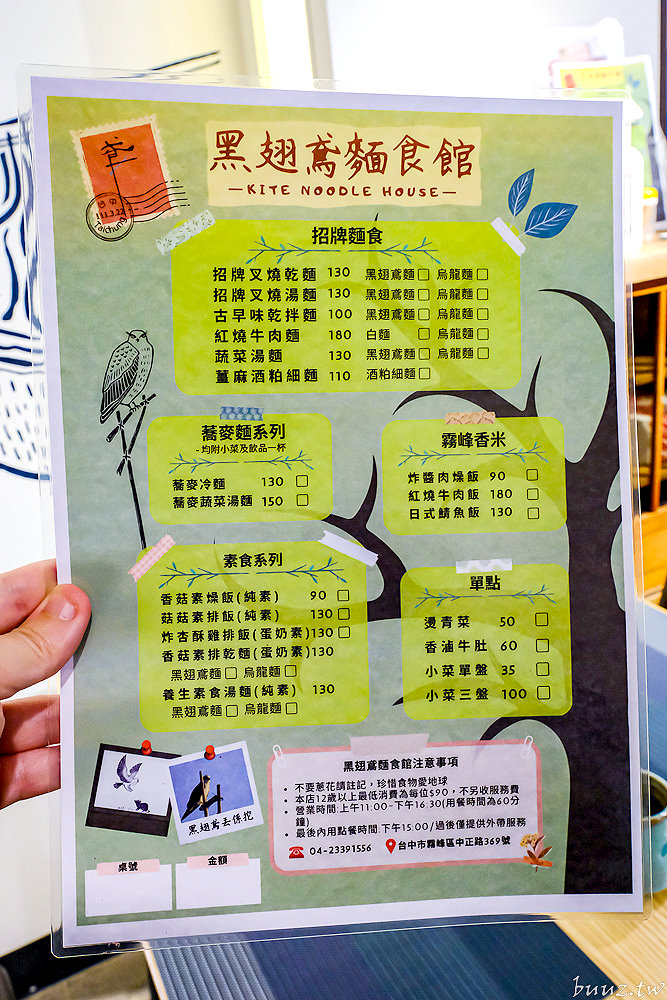 黑翅鳶麵食館
—KITE NOODLE HOUSE—
台中
111.3.22
Taichung
招牌麵食
招牌叉燒乾麵 130 黑翅鳶麵□ 烏龍麵□
招牌叉燒湯麵 130 黑翅鳶麵□ 烏龍麵□
古早味乾拌麵 100 黑翅鳶麵□ 烏龍麵□
紅燒牛肉麵 180 白麵 □ 烏龍麵□
蔬菜湯麵 130 黑翅鳶麵□ 烏龍麵□
薑麻酒粕細麵 110 酒粕細麵□
蕎麥麵系列
-均附小菜及飲品一杯
蕎麥冷麵 130 □
蕎麥蔬菜湯麵 150 □
霧峰香米
炸醬肉燥飯 90 □
紅燒牛肉飯 180 □
日式鯖魚飯 130 □
素食系列
香菇素燥飯(純素) 90 □
菇菇素排飯(純素) 130 □
炸杏酥雞排飯(蛋奶素)130 □
香菇素排乾麵(蛋奶素)130
黑翅鳶麵□ 烏龍麵□
養生素食湯麵(純素) 130
黑翅鳶麵□ 烏龍麵□
單點
燙青菜 50 □
香滷牛肚 60 □
小菜單盤 35 □
小菜三盤 100 □
黑翅鳶麵食館注意事項
• 不要蔥花請註記，珍惜食物愛地球
• 本店12歲以上最低消費為每位$90，不另收服務費
• 營業時間:上午11:00-下午16:30(用餐時間為60分
鐘)
• 最後內用點餐時間:下午15:00/過後僅提供外帶服務
04-23391556 台中市霧峰區中正路369號
黑翅鳶丟係挖
桌號
金額
buuz.tw